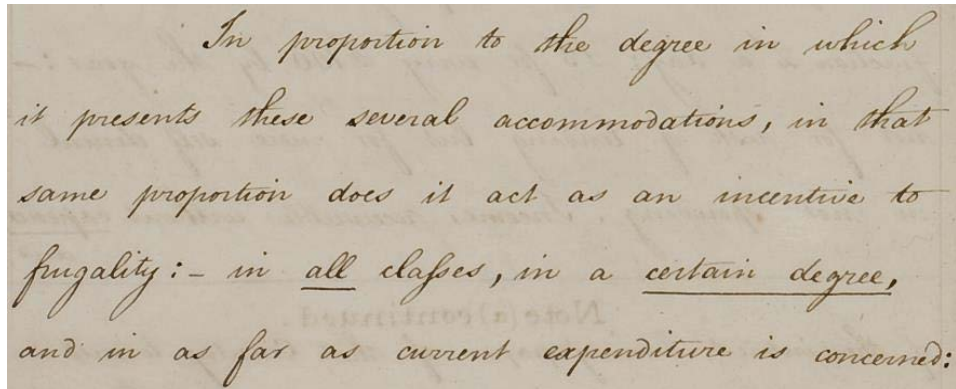 In proportion to the degree in which
it presents these several accommodations, in that
same proportion does it act as an incentive to
frugality: - in all claſses, in a certain degree,
and in as far as current expenditure is concerned: